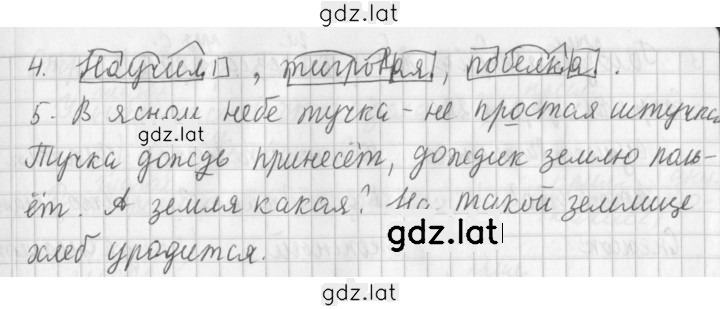 gdz.lat
4. Начил, тигровая, победка.
5. В ясном небе тучка - не простая штучка
gdz.lat
Тучка дождь принесёт, дождик землю поль-
ёт. А земля какая? На такой землице
gdz.lat
хлеб уродится.
gdz.lat